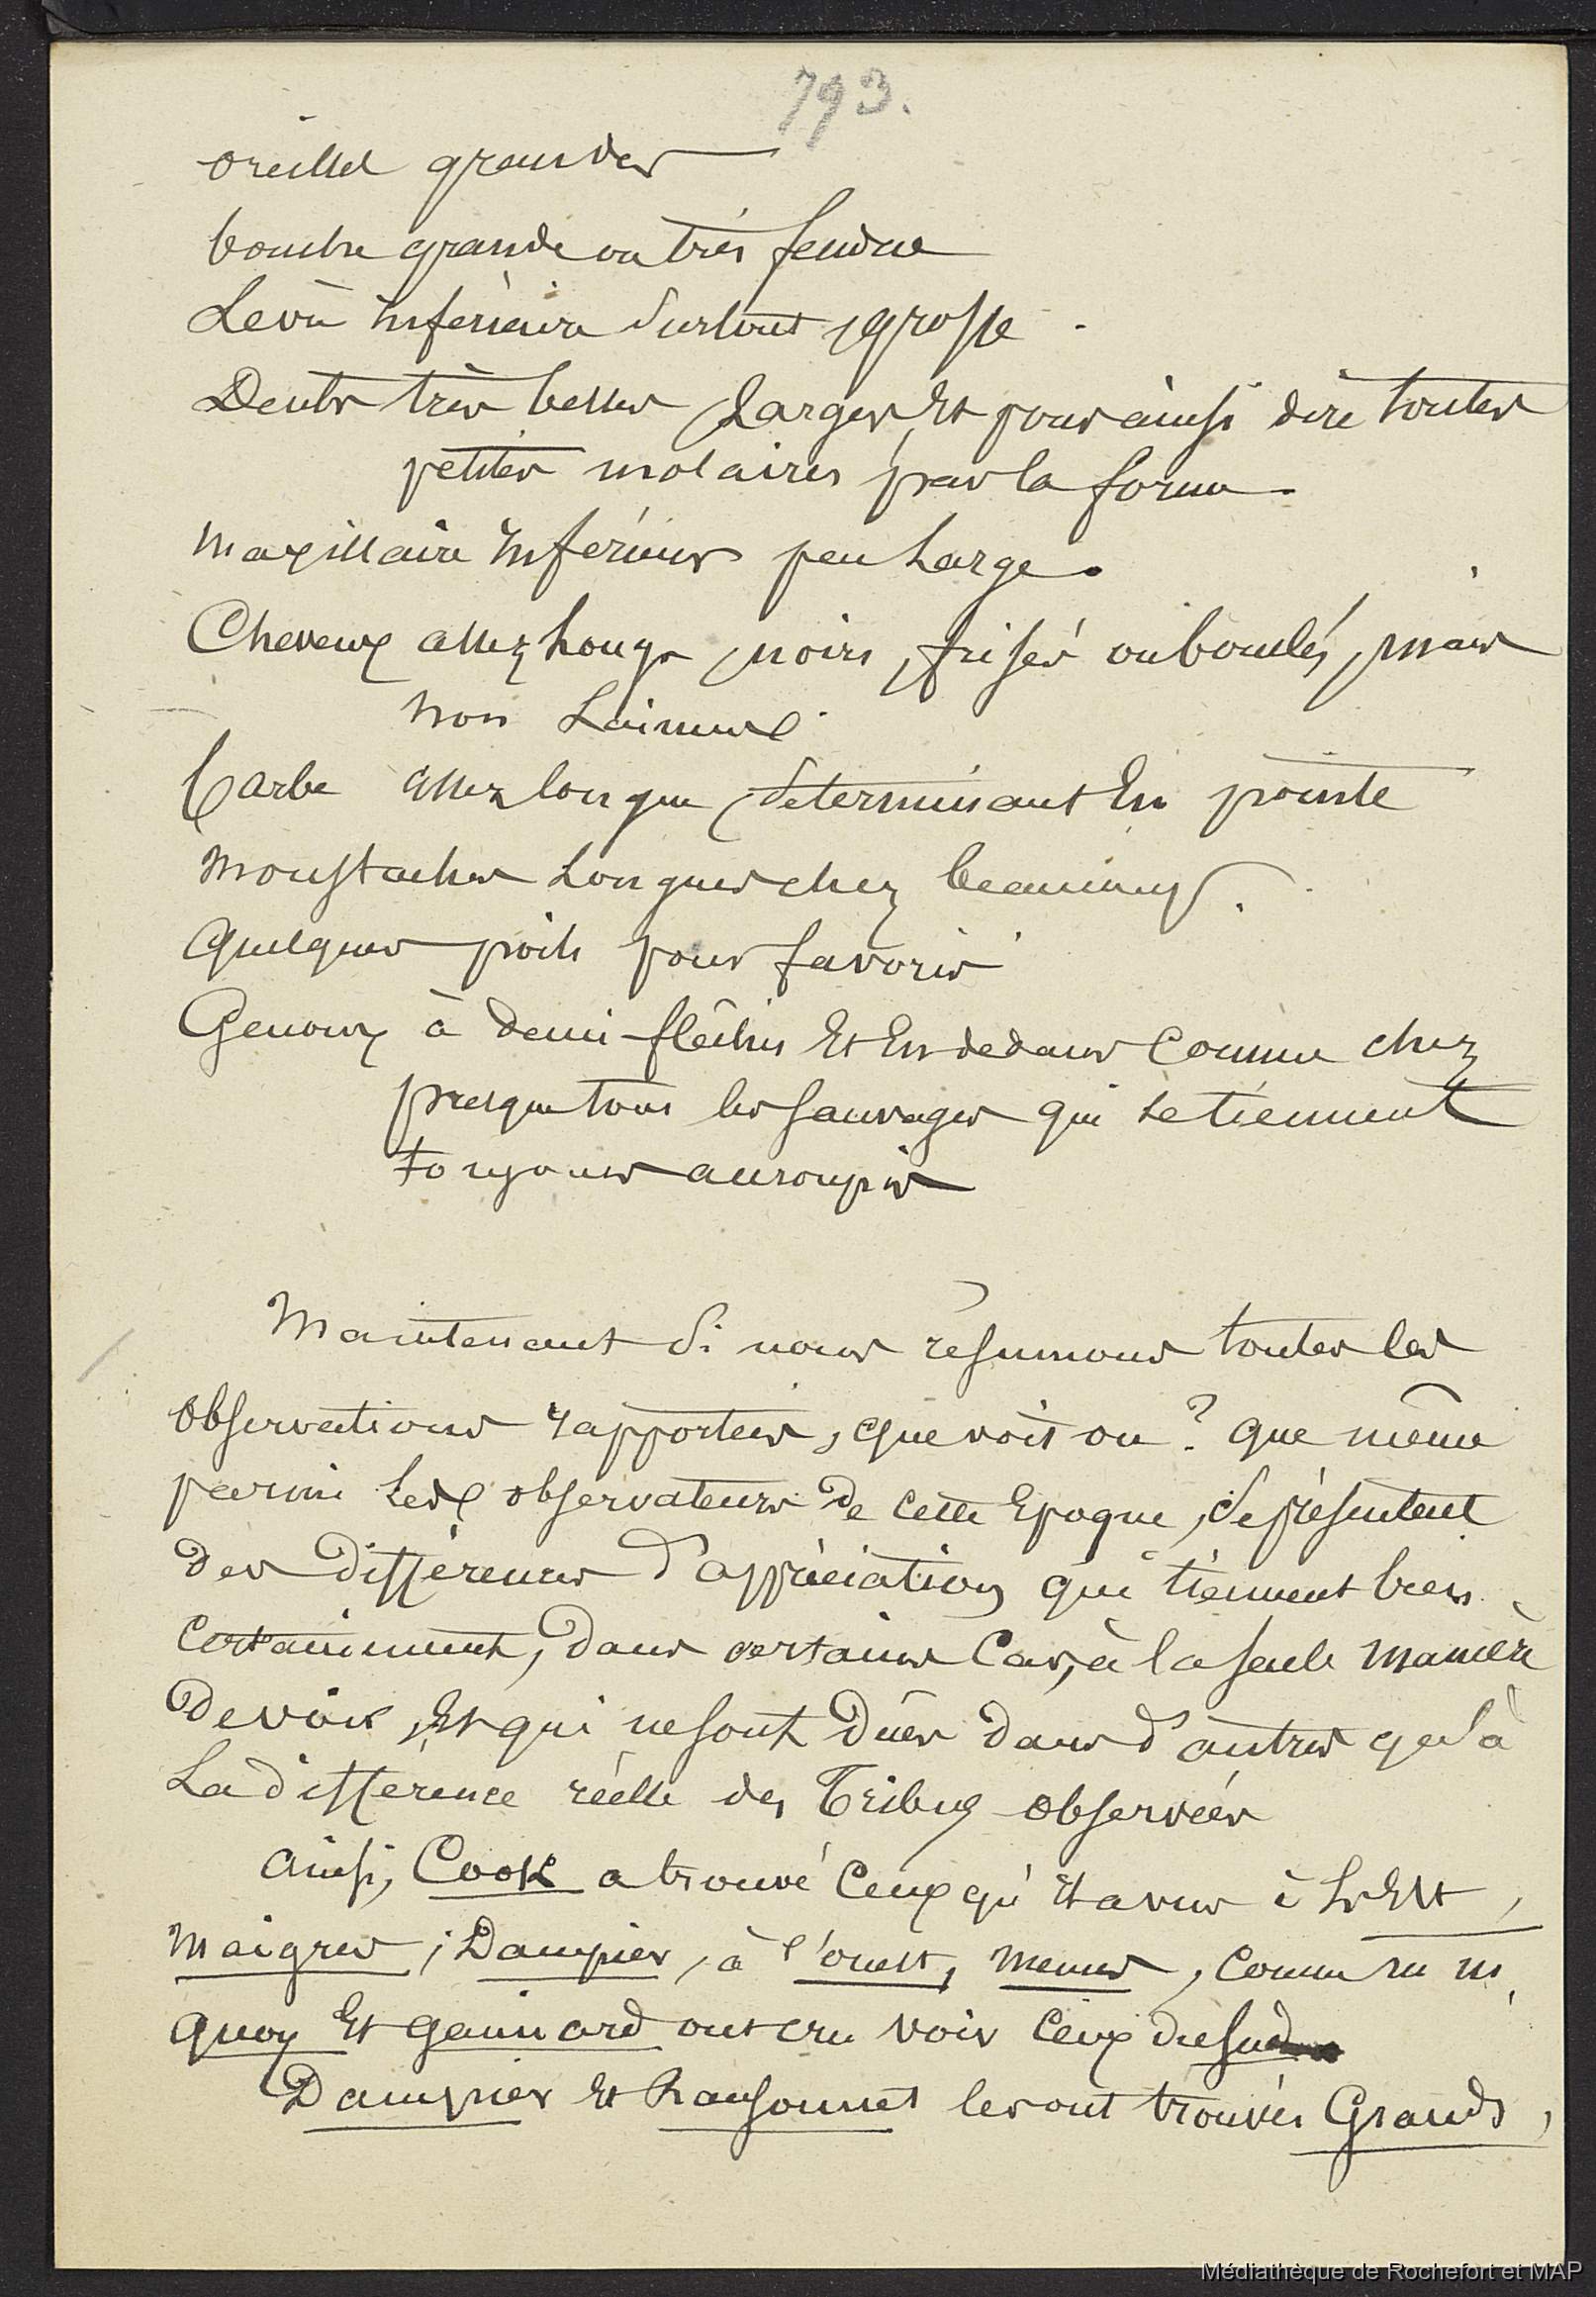 793.
oreilles grandes
bouche grande ou très fendue
Lèvre inférieure surtout, grosse.
Dents très belles, larges, et pour ainsi dire toutes
petites molaires par la forme.
maxillaire inférieur peu large.
Cheveux assez longs, noirs, frisés ou bouclés, mais
non Laineux.
barbe assez longue, se terminant En pointe
moustaches Longues chez beaucoup.
quelques poils pour favoris
Genoux à demi-fléchis Et En dedans Comme chez
presque tous les sauvages qui se tiennent
toujours accroupis
Maintenant si nous résumons toutes les
observations rapportées, que voit on? que même
parmi les observateurs de cette Epoque, se présentent
Des Différences D'appréciation qui tiennent bien
certainement, Dans certains Cas, à la seule manière
De voir, Et qui ne sont Dües dans d'autres qu'à
La différence réelle des Tribus observées
ainsi, Cook a trouvé Ceux qu'il a vus à L'Est,
maigres; Dampier, à l'ouest, menus, comme
Quoy Et Gaimard ont cru voir Ceux du sud
Dampier Et Ransonnet les ont trouvés Grands,
Médiathèque de Rochefort et MAP